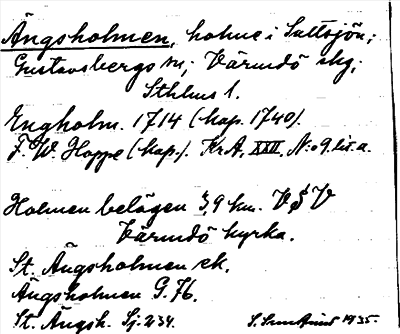 Ängsholmen, holme i Saltsjön;
Gustavsbergs sn; Värmdö skg;
Sthlms l.
Engholm. 1714 (kop. 1740).
F. W. Hoppe (kop.). KrA, XXII, N:o 9 lit. a.
Holmen belägen 3,9 km. VSV
Värmdö kyrka.
St. Ängsholmen ek.
Ängsholmen G. 76.
St. Ängsh. Sj. 234.
S. 1935.